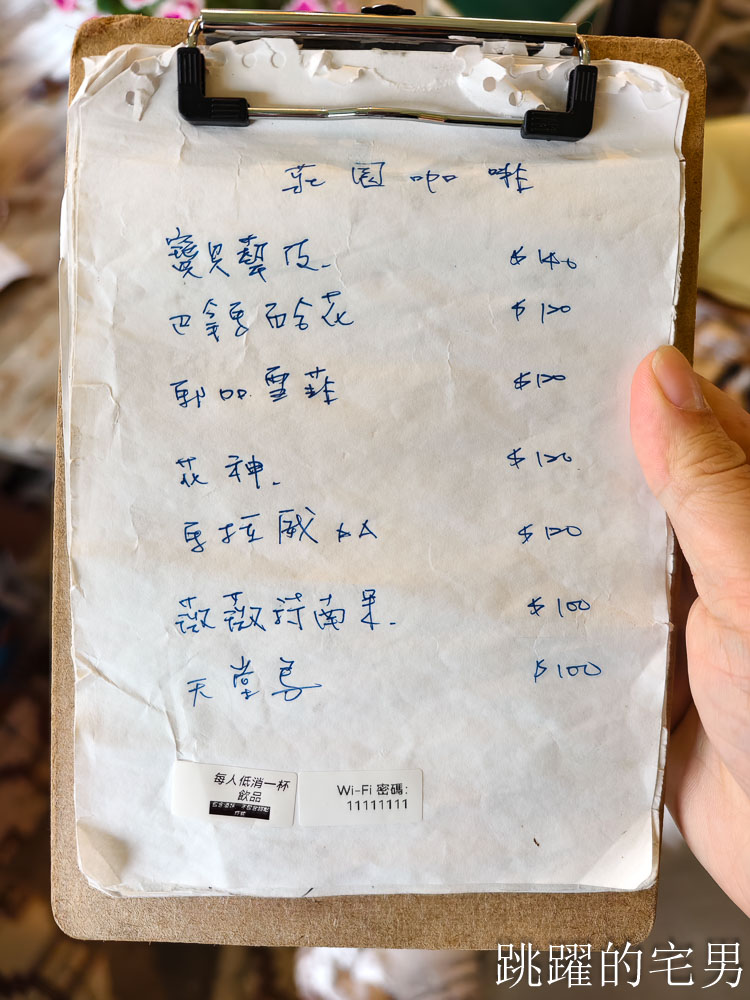 莊園咖啡
寶貝藝伎. $140
巴拿馬 哈花 $120
耶加雪菲 $120
花神. $120
馬拉威 AA $120
薇薇特南果. $100
天堂鳥 $100
每人低消一杯
飲品
Wi-Fi 密碼:
11111111
跳躍的宅男